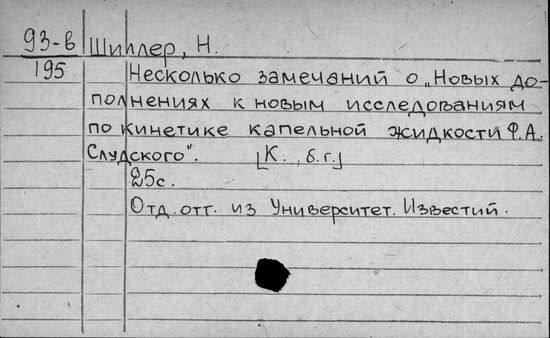 93-в Шиллер, Н.
195 Несколько замечаний о „Новых до-
полнениях к новым исследованиям
по кинетике капельной жидкости Ф.А.
Слудского".   [К., б.г.]
25с.
Отд. отт. из Университет. Известий.